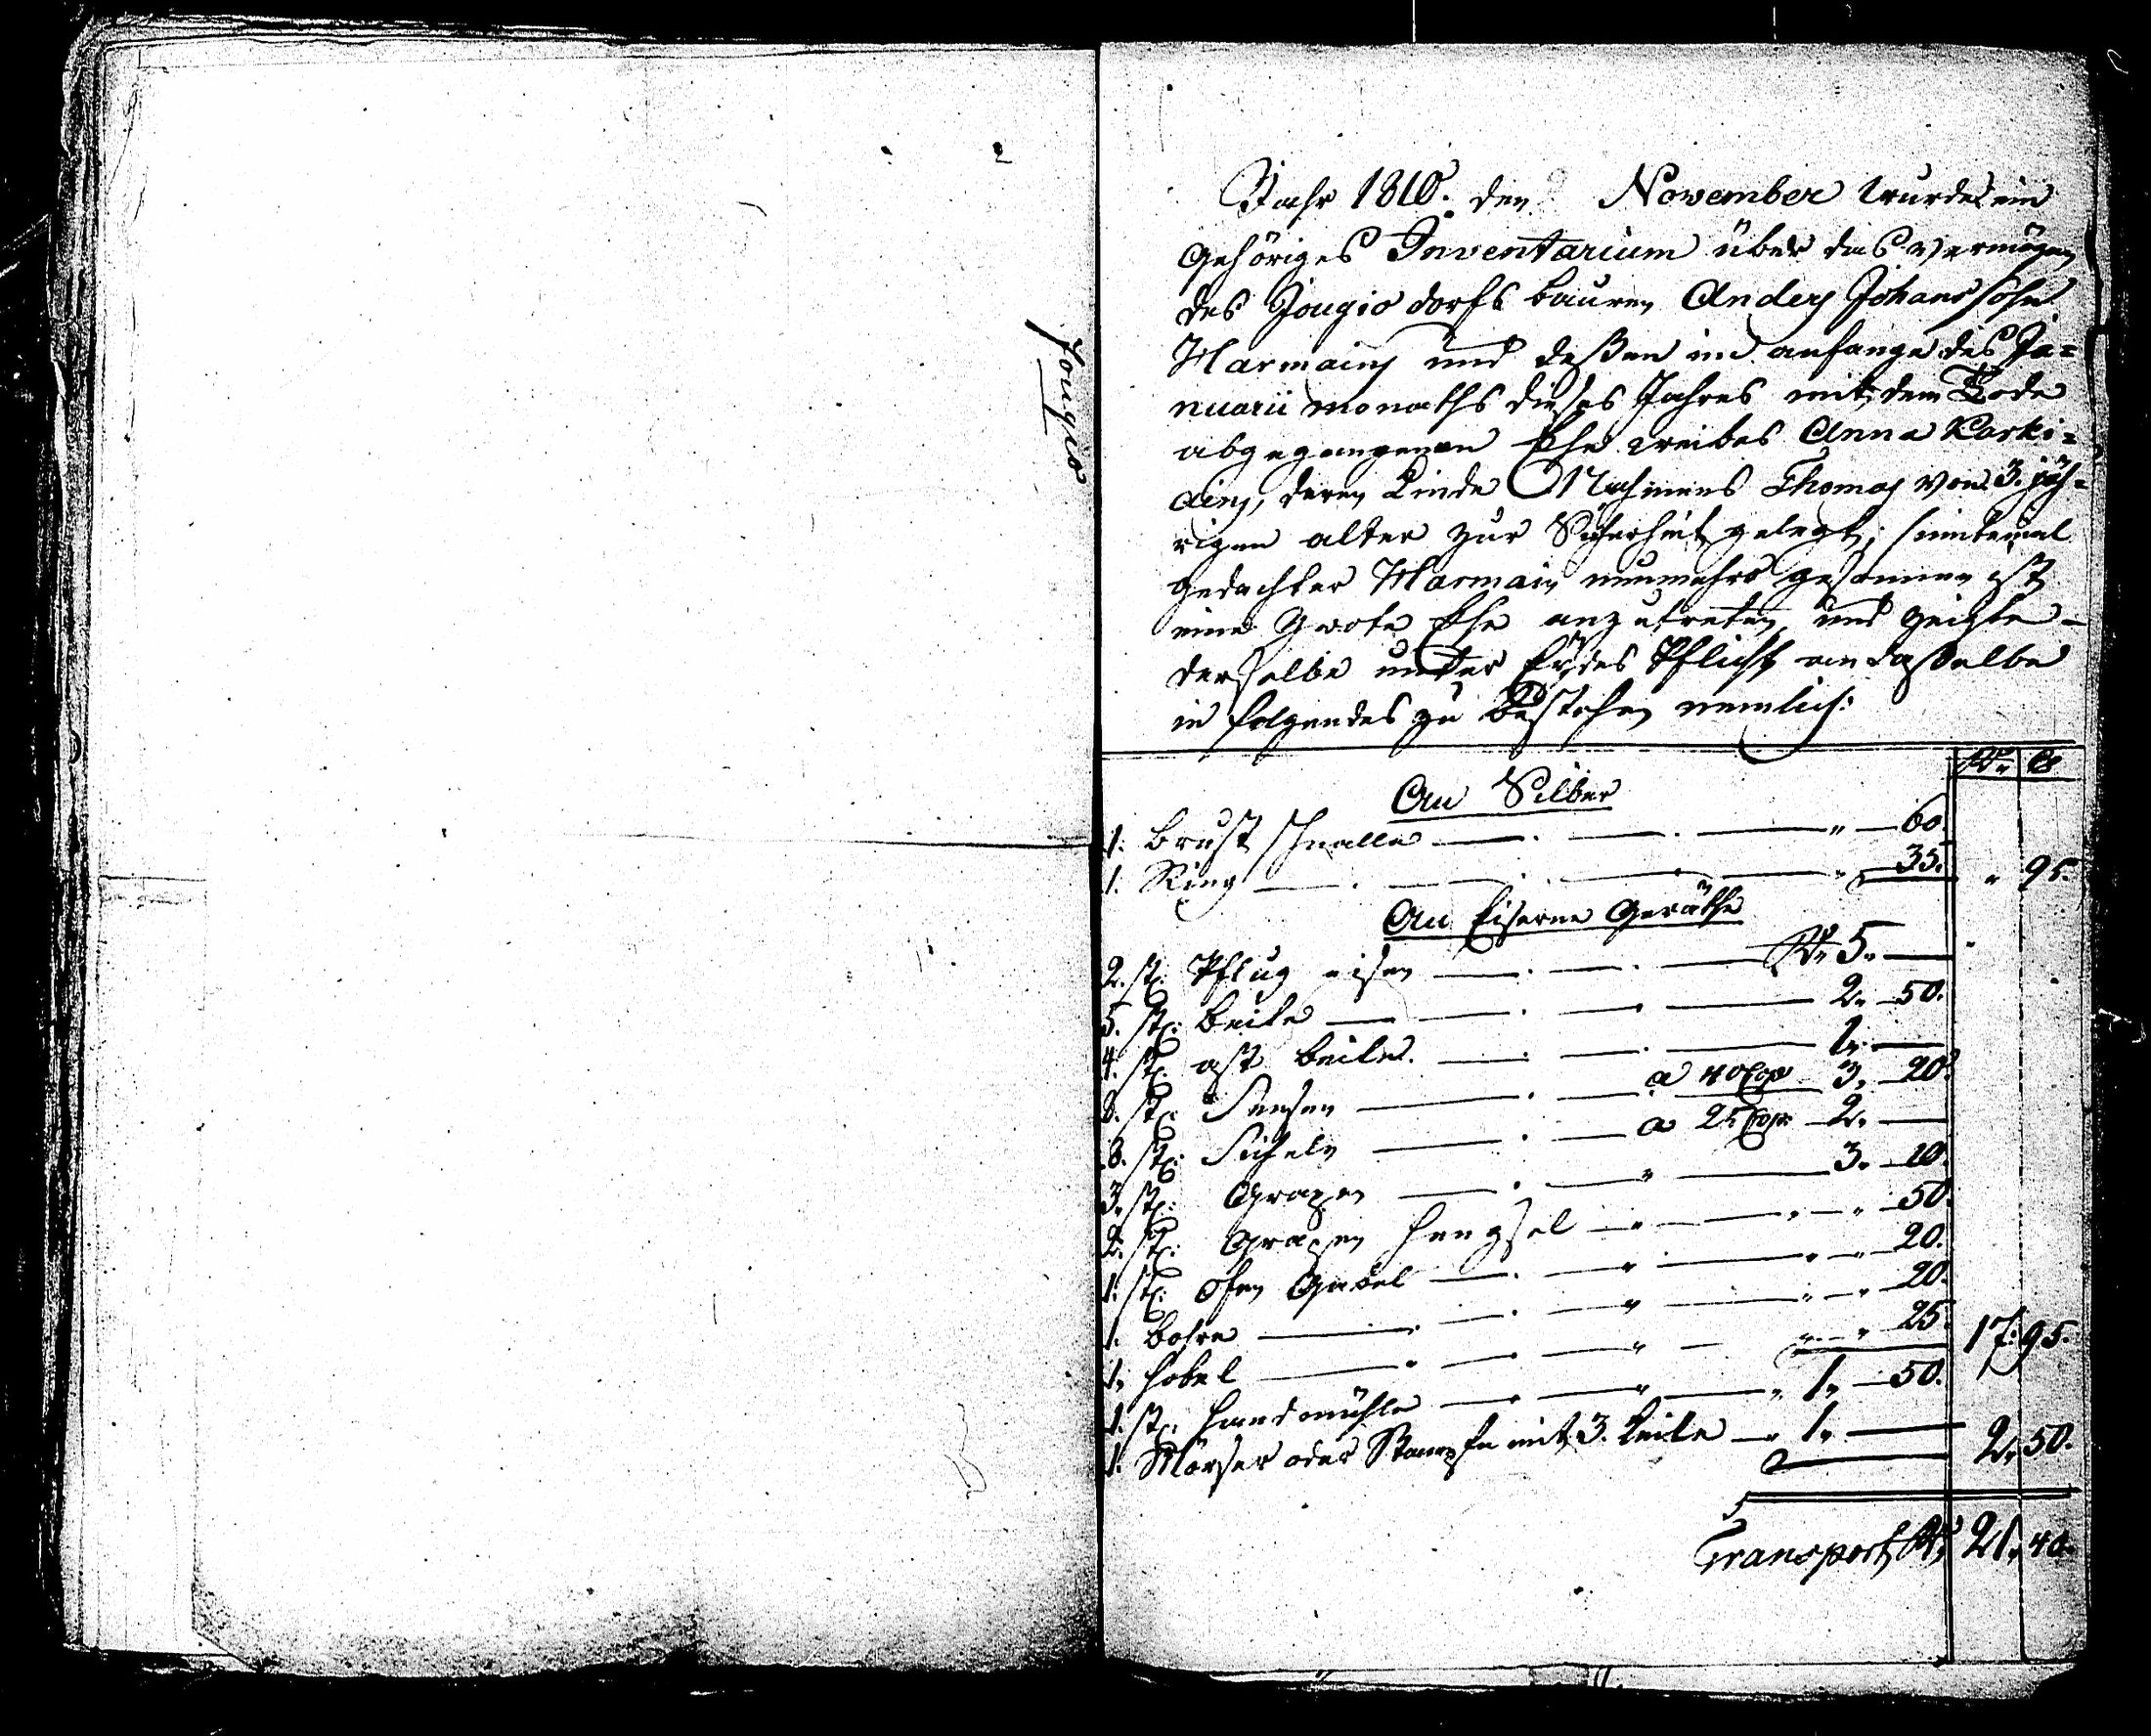 Jougio
Jahr 1810. den November wurde ein
gehöriges Inventarium über das vermögen
des Jougio dorfs bauren Anders Johans sohn
Marmains und deßen im anfange des Ja=
nuarii monaths dieses Jahres mit dem Tode
abgegangenen Ehe weibes Anna Korki=
ains, deren Kinde Nahmens Thomas von 3. jäh=
rigen alter zur Sicherheit gelegt; sintemal
gedachter Marmain nunmehro gesonnen ist
eine zwote Ehe anzutreten, und zeigte
derselbe unter Eydes Pflicht an dasselbe
in folgendes zu bestehen nemlich:
Rbl. C
An Silber
1. Brust schnalle — " — 60.
1. Ring — " — 35. " 95.
An Eiserne Geräthe
2. st: Pflug eisen — Rbl. 5. —
5. st: beile — 2. — 50.
4. st: ast beile. — 1. —
8. st: Sensen — a 40 Cop 3. — 20.
8. st: Sicheln — a 25 Cop. 2. —
3. st: Grapen — " — 3. — 10.
2. st: Grapen hengsel — " — " — 50.
1. st: Ofen Gabel — " — " — 20.
1. bohre — " — " — 20.
1. hobel — " — " 25. 17. 95.
1. st: handmühle — " — " 1. — 50.
1. Mörser oder Stampfe mit 3. Keile — " 1. — 2. 50.
Transport Rbl. 21. 40.